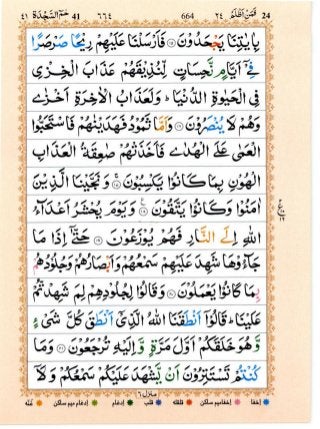 ٤١ حٰمٓ السَّجْدَة 41 ٦٦٤ 664 فَمَنْ اَظْلَمُ ٢٤ 24
بِاٰيٰتِنَا يَجْحَدُوْنَ ۝١٥ فَاَرْسَلْنَا عَلَيْهِمْ رِيْحًا صَرْصَرًا
فِيْٓ اَيَّامٍ نَّحِسَاتٍ لِّنُذِيْقَهُمْ عَذَابَ الْخِزْيِ
فِي الْحَيٰوةِ الدُّنْيَا ؕ وَلَعَذَابُ الْاٰخِرَةِ اَخْزٰى
وَهُمْ لَا يُنْصَرُوْنَ ۝١٦ وَاَمَّا ثَمُوْدُ فَهَدَيْنٰهُمْ فَاسْتَحَبُّوا
الْعَمٰى عَلَى الْهُدٰى فَاَخَذَتْهُمْ صٰعِقَةُ الْعَذَابِ
الْهُوْنِ بِمَا كَانُوْا يَكْسِبُوْنَ ۝١٧ وَنَجَّيْنَا الَّذِيْنَ
اٰمَنُوْا وَكَانُوْا يَتَّقُوْنَ ۝١٨ وَيَوْمَ يُحْشَرُ اَعْدَآءُ
اللّٰهِ اِلَى النَّارِ فَهُمْ يُوْزَعُوْنَ ۝١٩ حَتّٰٓى اِذَا مَا
جَآءُوْهَا شَهِدَ عَلَيْهِمْ سَمْعُهُمْ وَاَبْصَارُهُمْ وَجُلُوْدُهُمْ
بِمَا كَانُوْا يَعْمَلُوْنَ ۝٢٠ وَقَالُوْا لِجُلُوْدِهِمْ لِمَ شَهِدْتُّمْ
عَلَيْنَا ؕ قَالُوْٓا اَنْطَقَنَا اللّٰهُ الَّذِيْٓ اَنْطَقَ كُلَّ شَيْءٍ
وَّهُوَ خَلَقَكُمْ اَوَّلَ مَرَّةٍ وَّاِلَيْهِ تُرْجَعُوْنَ ۝٢١ وَمَا
كُنْتُمْ تَسْتَتِرُوْنَ اَنْ يَّشْهَدَ عَلَيْكُمْ سَمْعُكُمْ وَلَآ
منزل ٦
اخفا اخفا میم ساکن قلقلہ قلب ادغام ادغام میم ساکن غنّہ